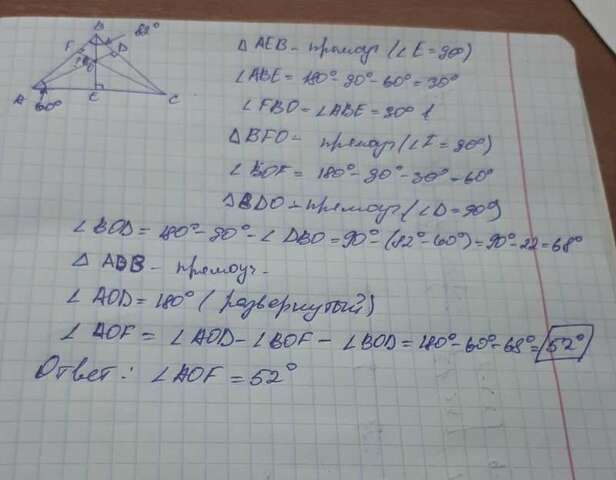 B 82°
F D
O
A E C
60°
△ AEB - прямоуг (∠E = 90°)
∠ABE = 180° - 90° - 60° = 30°
∠FBO = ∠ABE = 30°
△BFO - прямоуг (∠F = 90°)
∠BOF = 180° - 90° - 30° = 60°
△BDO - прямоуг (∠D = 90°)
∠BOD = 180° - 90° - ∠DBO = 90° - (82° - 60°) = 90° - 22 = 68°
△ ADB - прямоуг.
∠ AOD = 180° (развернутый)
∠ AOF = ∠AOD - ∠BOF - ∠BOD = 180° - 60° - 68° = 52°
Ответ: ∠AOF = 52°